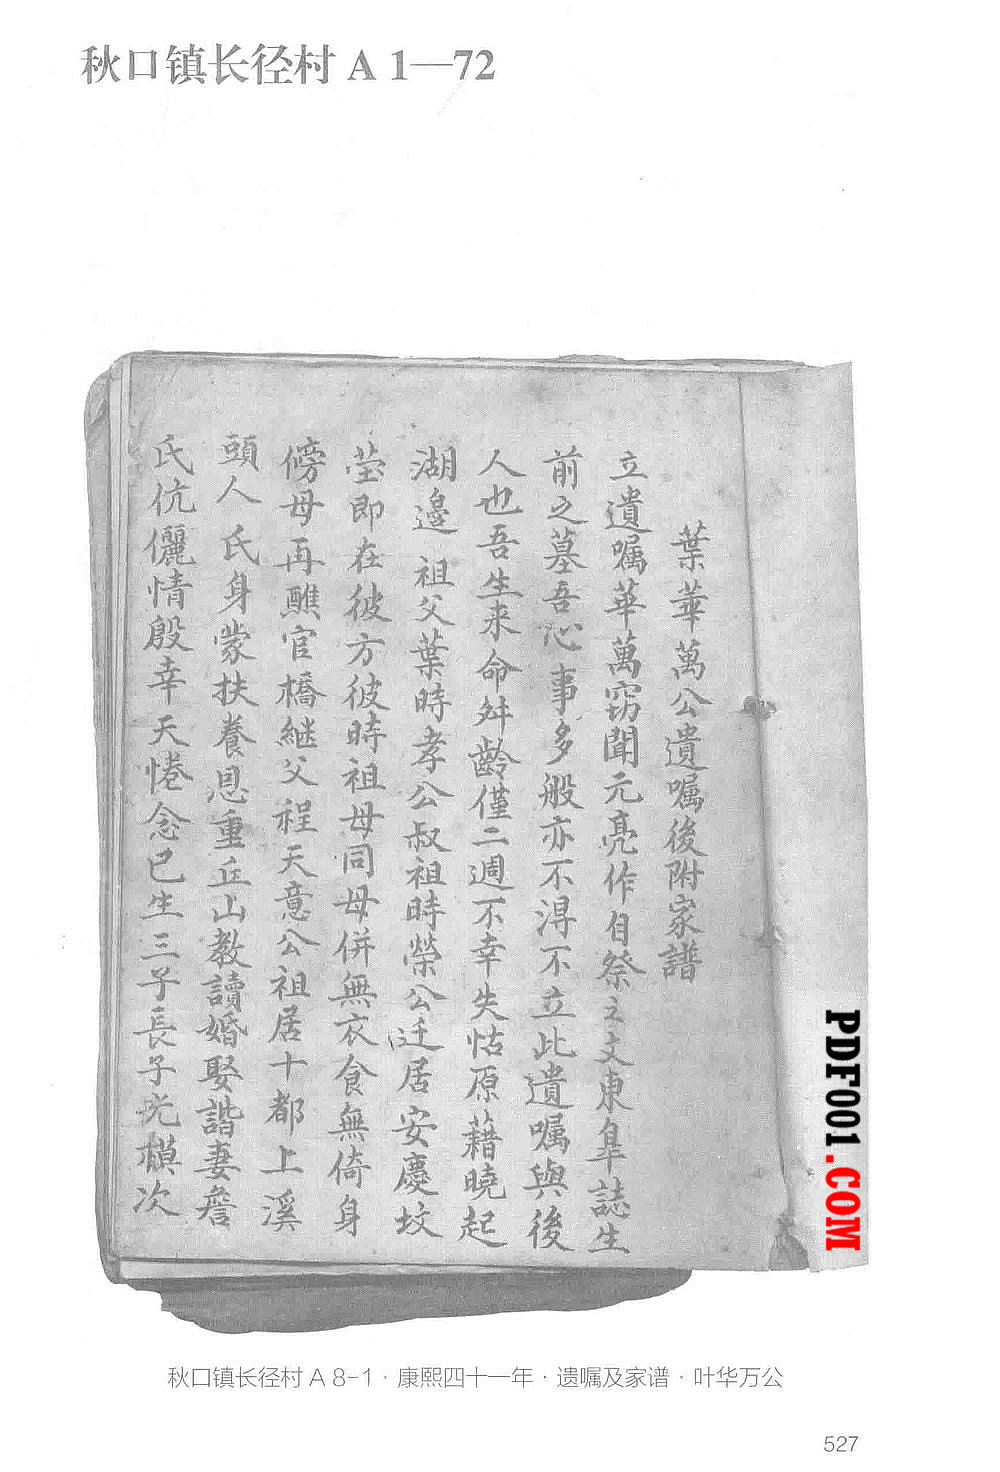 秋口镇长径村 A 1—72
葉華萬公遺嘱後附家譜
立遺嘱華萬窃聞元亮作自祭之文東臯誌生
前之墓吾心事多般亦不淂不立此遺嘱與後
人也吾生来命舛齡僅二週不幸失怙原藉曉起
湖邊 祖父葉時孝公叔祖時榮公迁居安慶坟
茔即在彼方彼時祖母同母併無衣食無倚身
傍母再醮官橋継父程天意公祖居十都上溪
頭人 氏身蒙扶養恩重丘山教讀婚娶諧妻詹
氏伉儷情殷幸天惓念已生三子長子光模次
PDF001.COM
秋口镇长径村 A 8-1 · 康熙四十一年 · 遗嘱及家谱 · 叶华万公
527